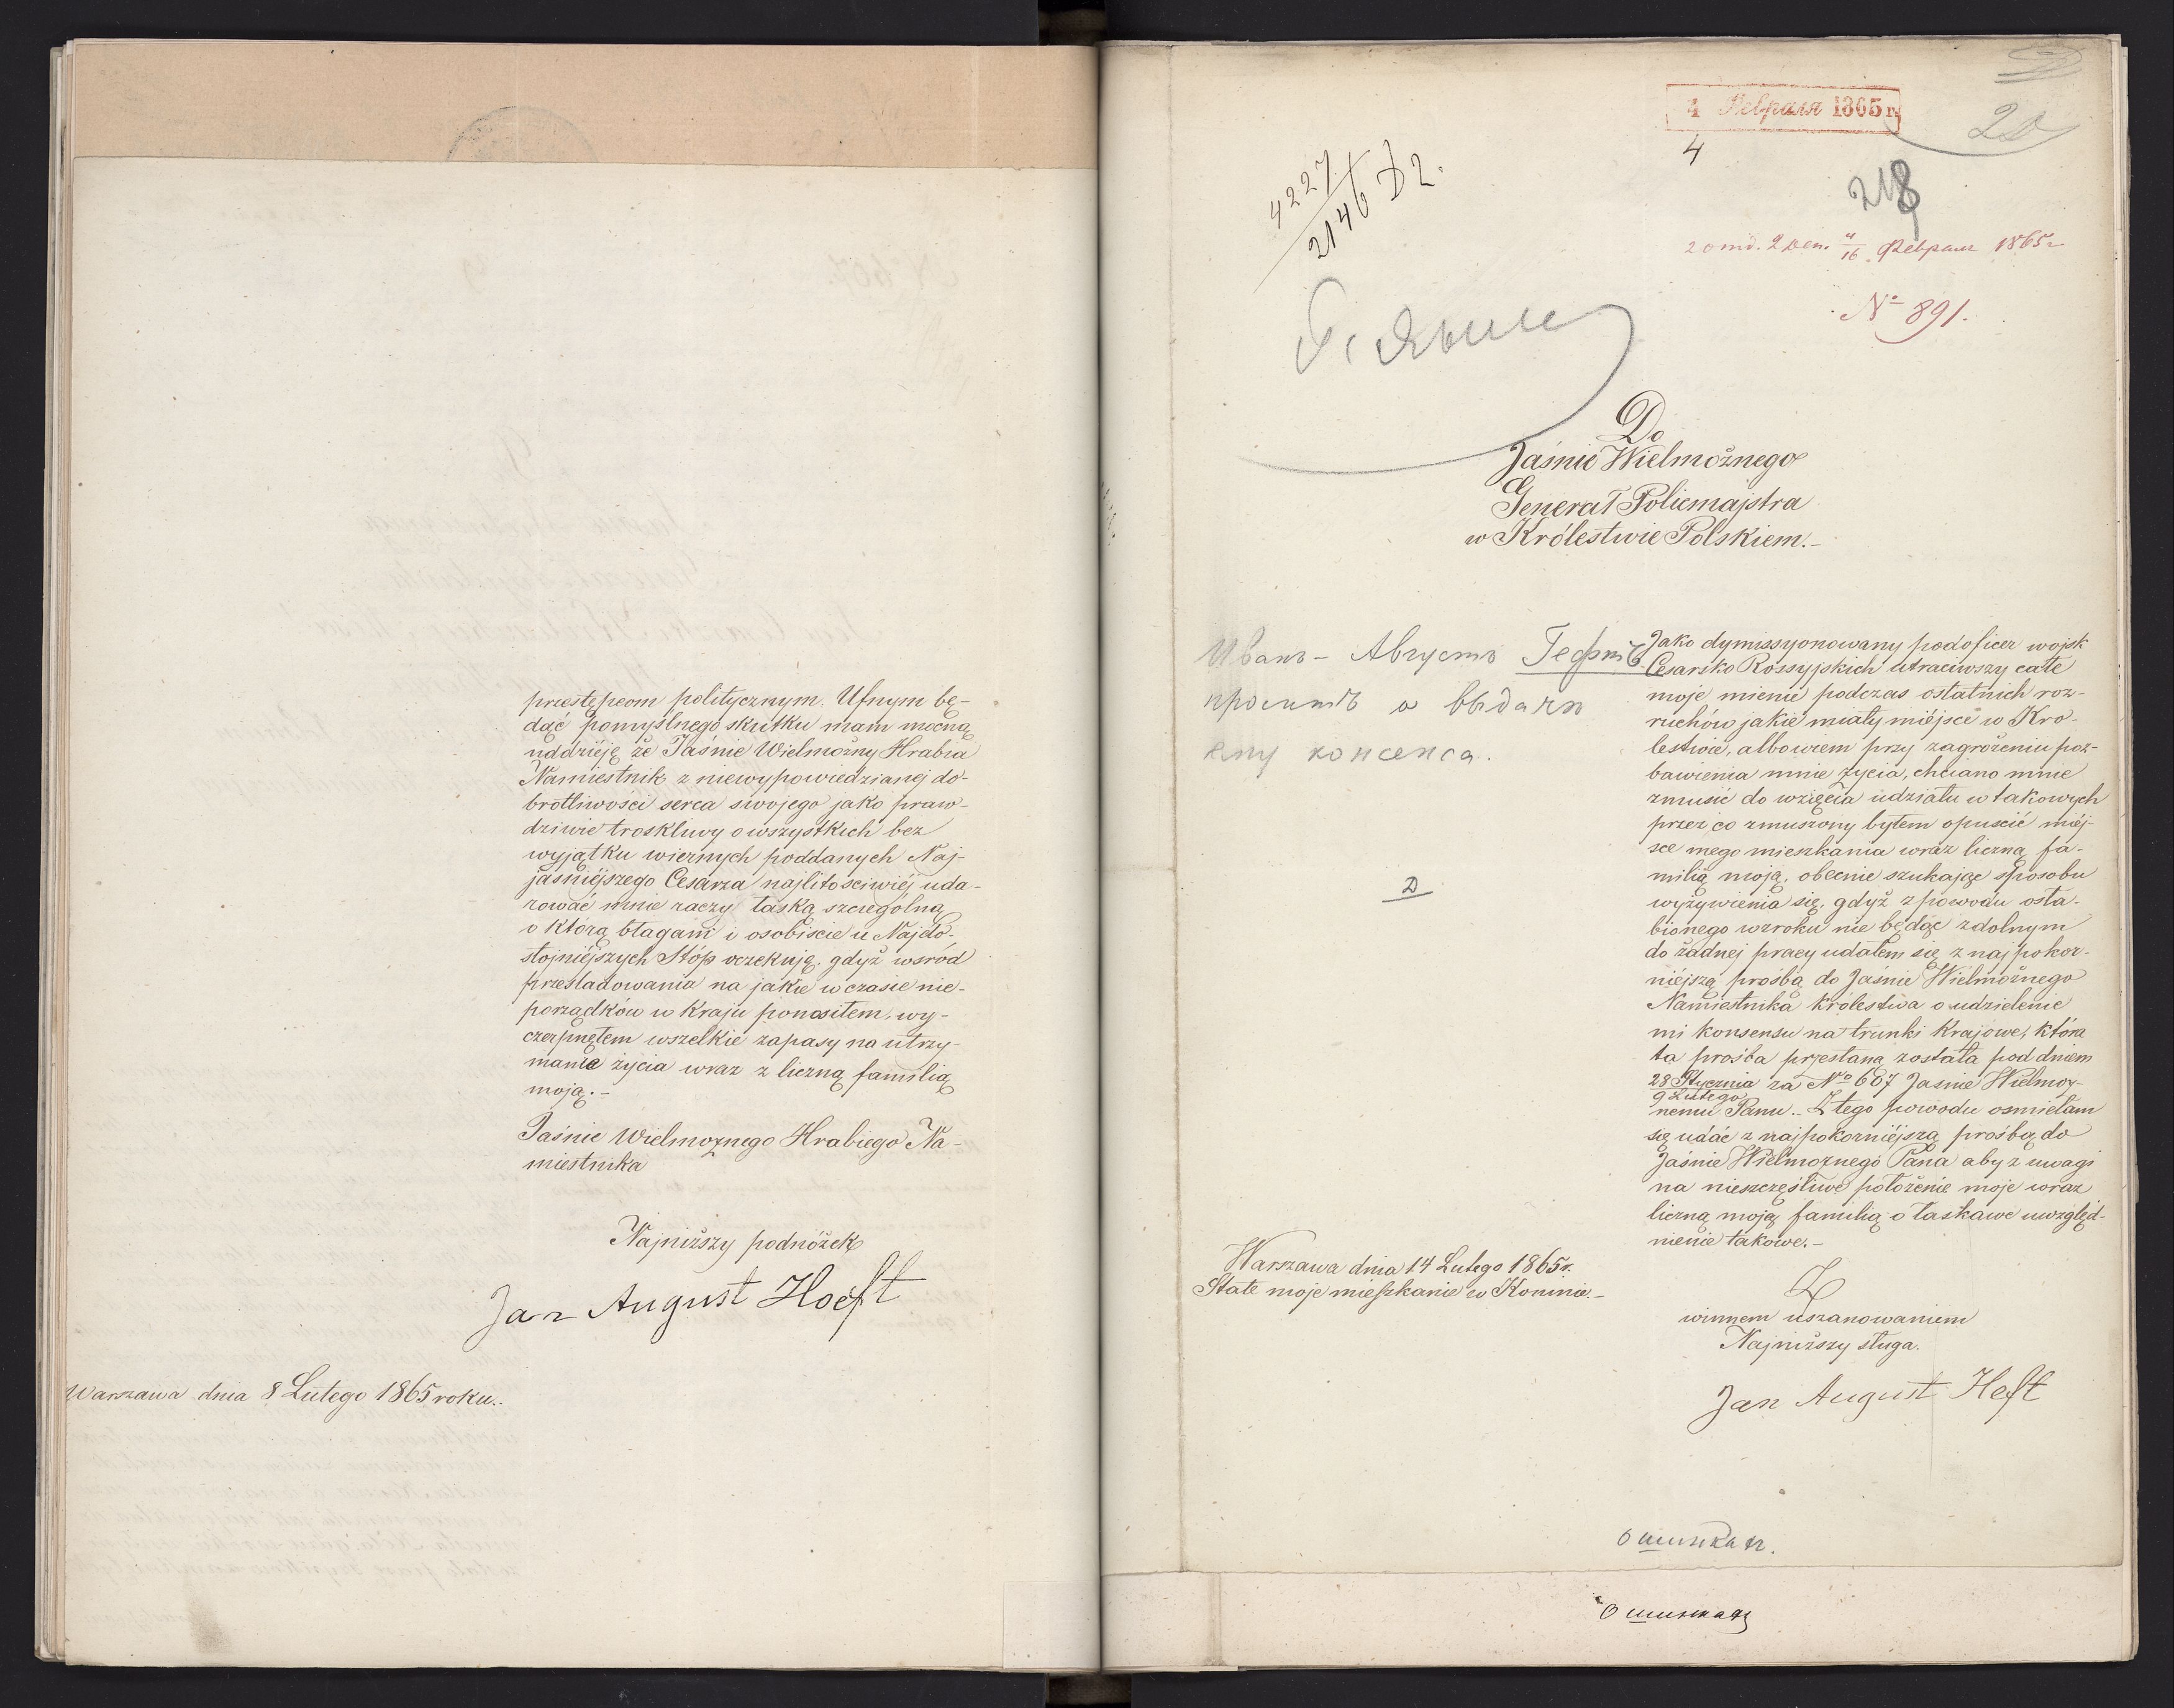 przestępcom politycznym. Ufnym bę-
dąć pomyślnego skutku mam mocną
naddziéję że Jaśnie Wielmożny Hrabia
Namiestnik z niewypowiedzianej do-
brotliwości serca swojego jako praw-
dziwie troskliwy o wszystkich bez
wyjątku wiernych poddanych Naj-
jaśniéjszego Cesarza najlitościwiéj uda-
rować mnie raczy łaską szczególną
o którą błagam i osobiście u Najdo-
stojniéjszych Stóp oczekuję, gdyż wsród
prześladowania na jakie w czasie nie-
porządków w Kraju ponosiłem, wy-
czerpnęłem wszelkie zapasy na utrzy-
manie życia wraz z liczną familią
moją.-
Jaśnie Wielmożnego Hrabiego Na-
miestnika
Najniższy podnóżek
Jan August Hoeft
Warszawa dnia 8 Lutego 1865 roku.
4 Февраля 1865 г.
4
20
218
4227
2146 Д2.
2 отд. 2 Ден. 4/16 Февраля 1865 г
№ 891.
Do
Jaśnie Wielmożnego
Generał Policmajstra
w Królestwie Polskiem.-
Иванъ - Августъ Гефтъ
проситъ о выдачи
ему консенса.
Jako dymissyonowany podoficer wojsk
Cesarsko Rossyjskich utraciwszy całe
moje mienie podczas ostatnich roz-
ruchów jakie miały miéjsce w Kro-
lestwie, albowiem przy zagrożeniu poz-
bawienia mnie życia, chciano mnie
zmusić do wzięcia udziału w takowych
przez co zmuszony byłem opuścić miéj-
sce mego mieszkania wraz liczną fa-
milią moją, obecnie szukając sposobu
wyżywienia się, gdyż z powodu osła-
bionego wzroku nie będąc zdolnym
do żadnej pracy udałem się z najpokor-
niéjszą prośbą do Jaśnie Wielmożnego
Namiestnika Królestwa o udzielenie
mi konsensu na trunki Krajowe, która
ta prośba przesłaną została pod dniem
28 Stycznia za № 607 Jaśnie Wielmoż-
9 Lutego
nemu Panu. Z tego powodu osmielam
się udać z najpokorniéjszą prośbą do
Jaśnie Wielmożnego Pana aby z uwagi
na nieszczęśliwe położenie moje wraz
liczną moją familią o łaskawe uwzględ-
nienie takowe.-
Warszawa dnia 14 Lutego 1865 r.
Stałe moje mieszkanie w Koninie.-
Z
winnem uszanowaniem
Najniższy sługa.
Jan August Heft